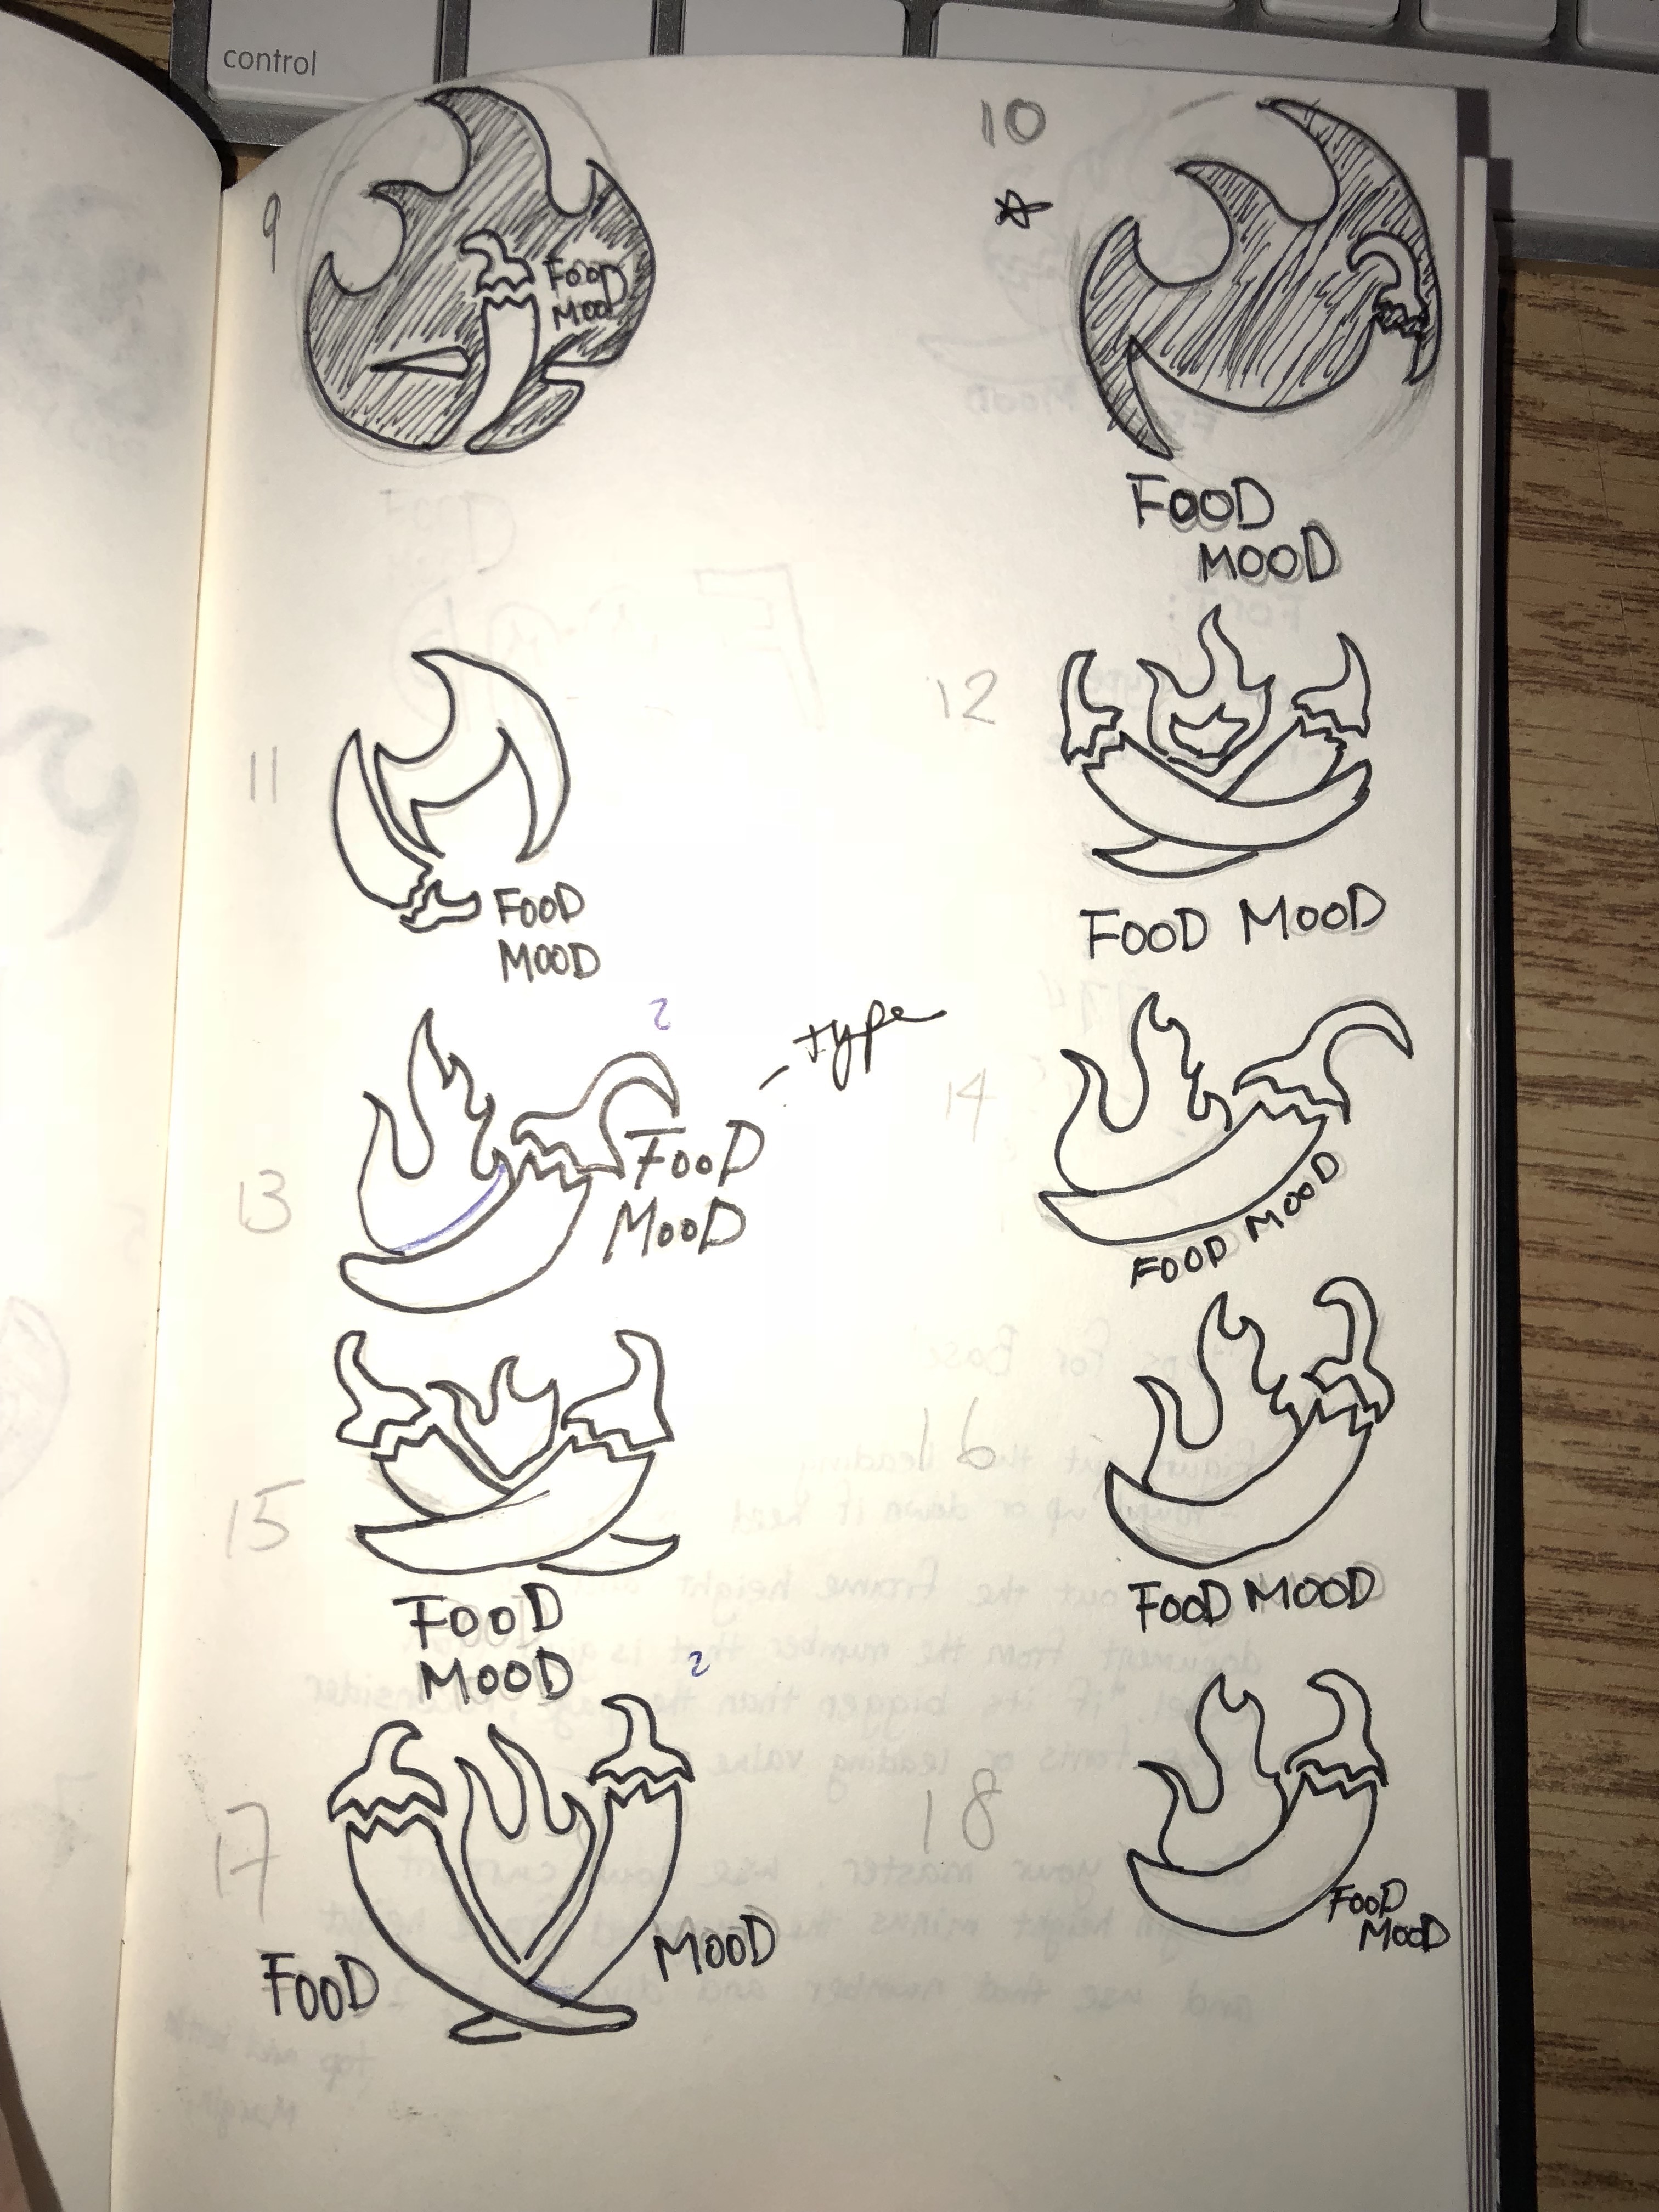 control
9
FOOD
MOOD
10
FOOD
MOOD
11
FOOD
MOOD
12
FOOD MOOD
13
2
type
FOOD
MOOD
14
FOOD MOOD
15
FOOD
MOOD
16
FOOD MOOD
17
2
FOOD
MOOD
18
FOOD
MOOD